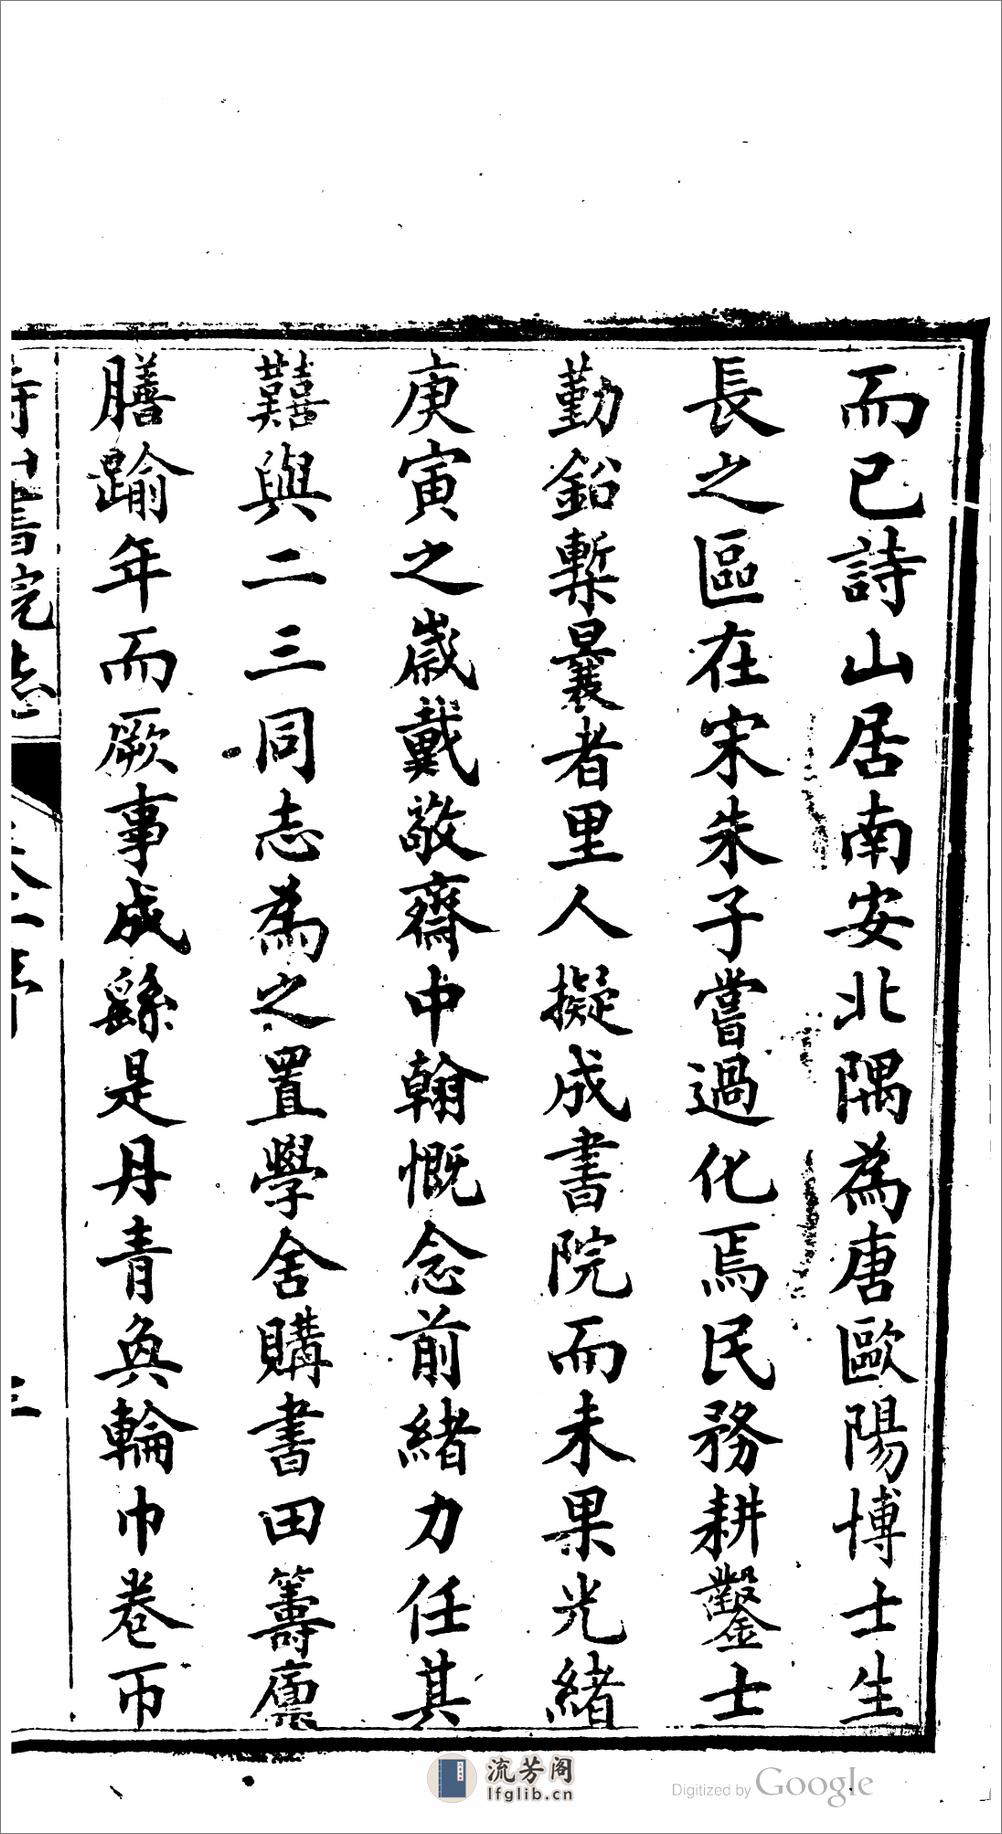 而已詩山居南安北隅為唐歐陽博士生
長之區在宋朱子嘗過化焉民務耕鑿士
勤鉛槧曩者里人擬成書院而未果光緒
庚寅之歲戴敬齋中翰慨念前緒力任其
囏與二三同志為之置學舍購書田籌廩
膳踰年而厥事成繇是丹青奐輪巾卷帀
詩山書院志
三
流芳阁
lfglib.cn
Digitized by Google